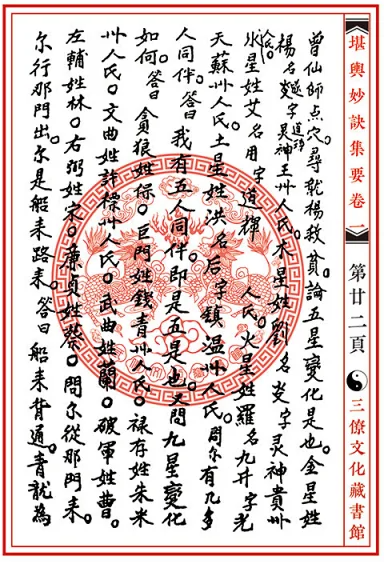 堪輿妙訣集要卷一 第廿二頁 三僚文化藏書館
曾仙師点穴。尋龍楊救貧。論五星變化是也。金星姓
楊名字灵神王州人氏。木星姓劉名字灵神貴州
人氏。水星姓艾名用字道輝人氏。火星姓羅名九升字光
天蘇州人氏。土星姓洪名后字鎮温州人氏。問尔有几多
人同伴。答曰我有五人同伴即是五星是也。又問九星變化
如何。答曰貪狼姓标。巨門姓錢青州人氏。禄存姓朱米
州人氏。文曲姓許標州人氏。武曲姓蘭。破軍姓曹。
左輔姓林。右弼姓宋。廉貞姓蔡。問尔從那門来。
尔行那門出。尔是船来路来。答曰船来背通。青龍為